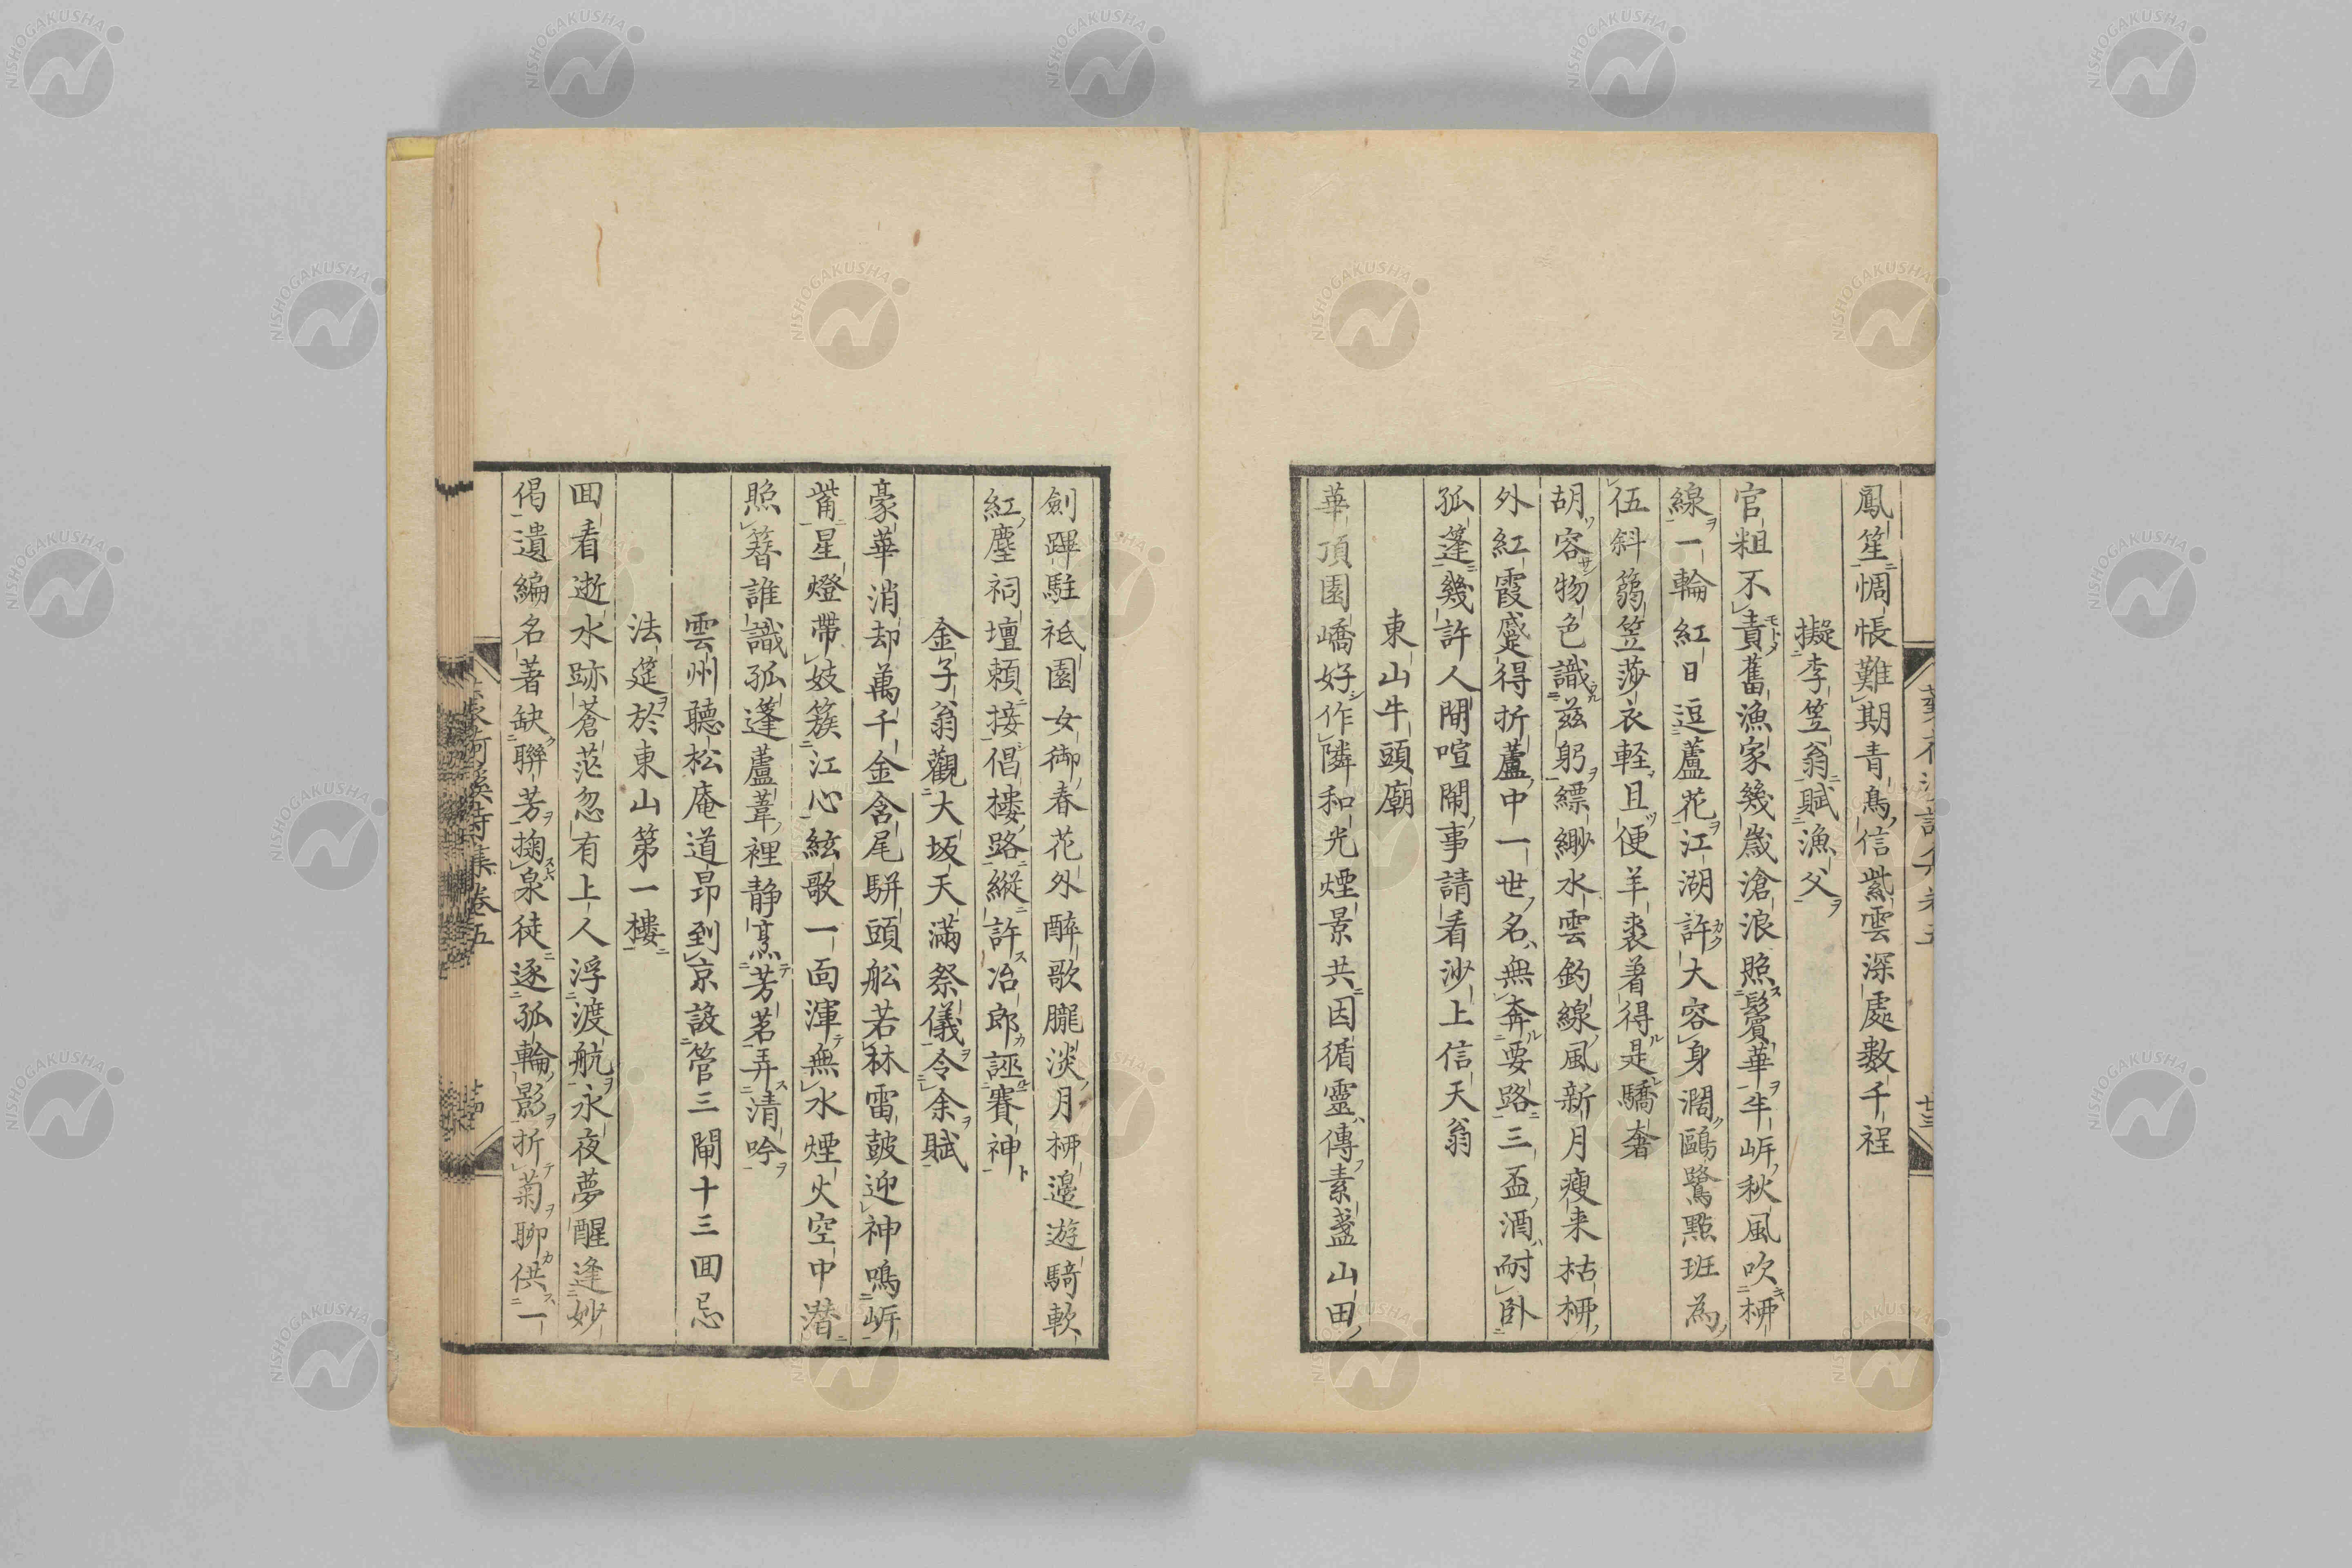 鳳笙惆悵難期青鳥信紫雲深處數千程
擬李笠翁賦漁父
官粗不責舊漁家幾歲滄浪照鬢華半㟁秋風吹柳
線一輪紅日逗蘆花江湖許大容身濶鷗鷺點班為
伍斜篛笠莎衣軽且便羊裘著得是驕奢
胡容物色識茲躬縹緲水雲釣線風新月瘦来枯柳
外紅霞蹙得折蘆中一世名無奔要路三盃酒耐臥
孤篷幾許人間喧鬧事請看沙上信天翁
東山牛頭廟
華頂園嶠好作隣和光煙景共因循靈傳素盞山田
劍蹕駐祗園女御春花外醉歌朧淡月柳邊遊騎軟
紅塵祠壇頼接倡樓路縱許冶郎誣賽神
金子翁觀大坂天滿祭儀令余賦
豪華消却萬千金舎尾駢頭舩若林雷鼓迎神鳴㟁
觜星燈帶妓簇江心絃歌一面渾無水煙火空中潜
照簪誰識孤篷蘆葦裡静烹芳茗弄清吟
雲州聽松庵道昂到京設管三閘十三回忌
法筵於東山第一樓
回看逝水跡蒼茫忽有上人浮渡航永夜夢醒逢妙
偈遺編名著缺聯芳掬泉徒逐孤輪影折菊聊供一
詩集卷五
NISHOGAKUSHA